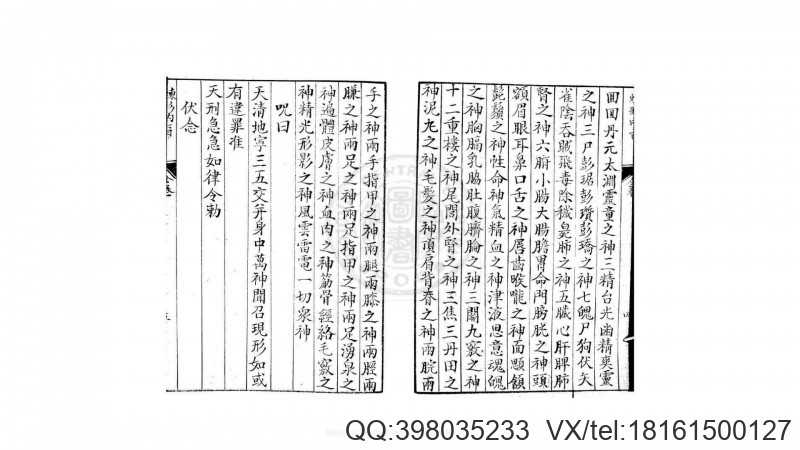 丹元太淵靈童之神三精台光幽精爽靈
之神三尸彭琚彭瓆彭矯之神七魄尸狗伏矢
雀陰吞賊飛毒除穢臭肺之神五臟心肝脾肺
腎之神六腑小腸大腸膽胃命門膀胱之神頭
額眉眼耳鼻口舌之神唇齒喉嚨之神面顋頷
髭鬚之神性命神氣精血之神津液思意魂魄
之神胸膈乳脇肚腹臍腧之神三關九竅之神
十二重樓之神尾閭外腎之神三焦三丹田之
神泥丸之神毛髮之神頂肩背脊之神兩腕兩
手之神兩手指甲之神兩腿兩膝之神兩腰兩
臁之神兩足之神兩足指甲之神兩足湧泉之
神遍體皮膚之神血肉之神筋骨經絡毛竅之
神精光形影之神風雲雷電一切眾神
咒曰
天清地寧三五交并身中萬神聞召現形如或
有違罪準
天刑急急如律令勑
伏念
QQ:398035233 VX/tel:18161500127